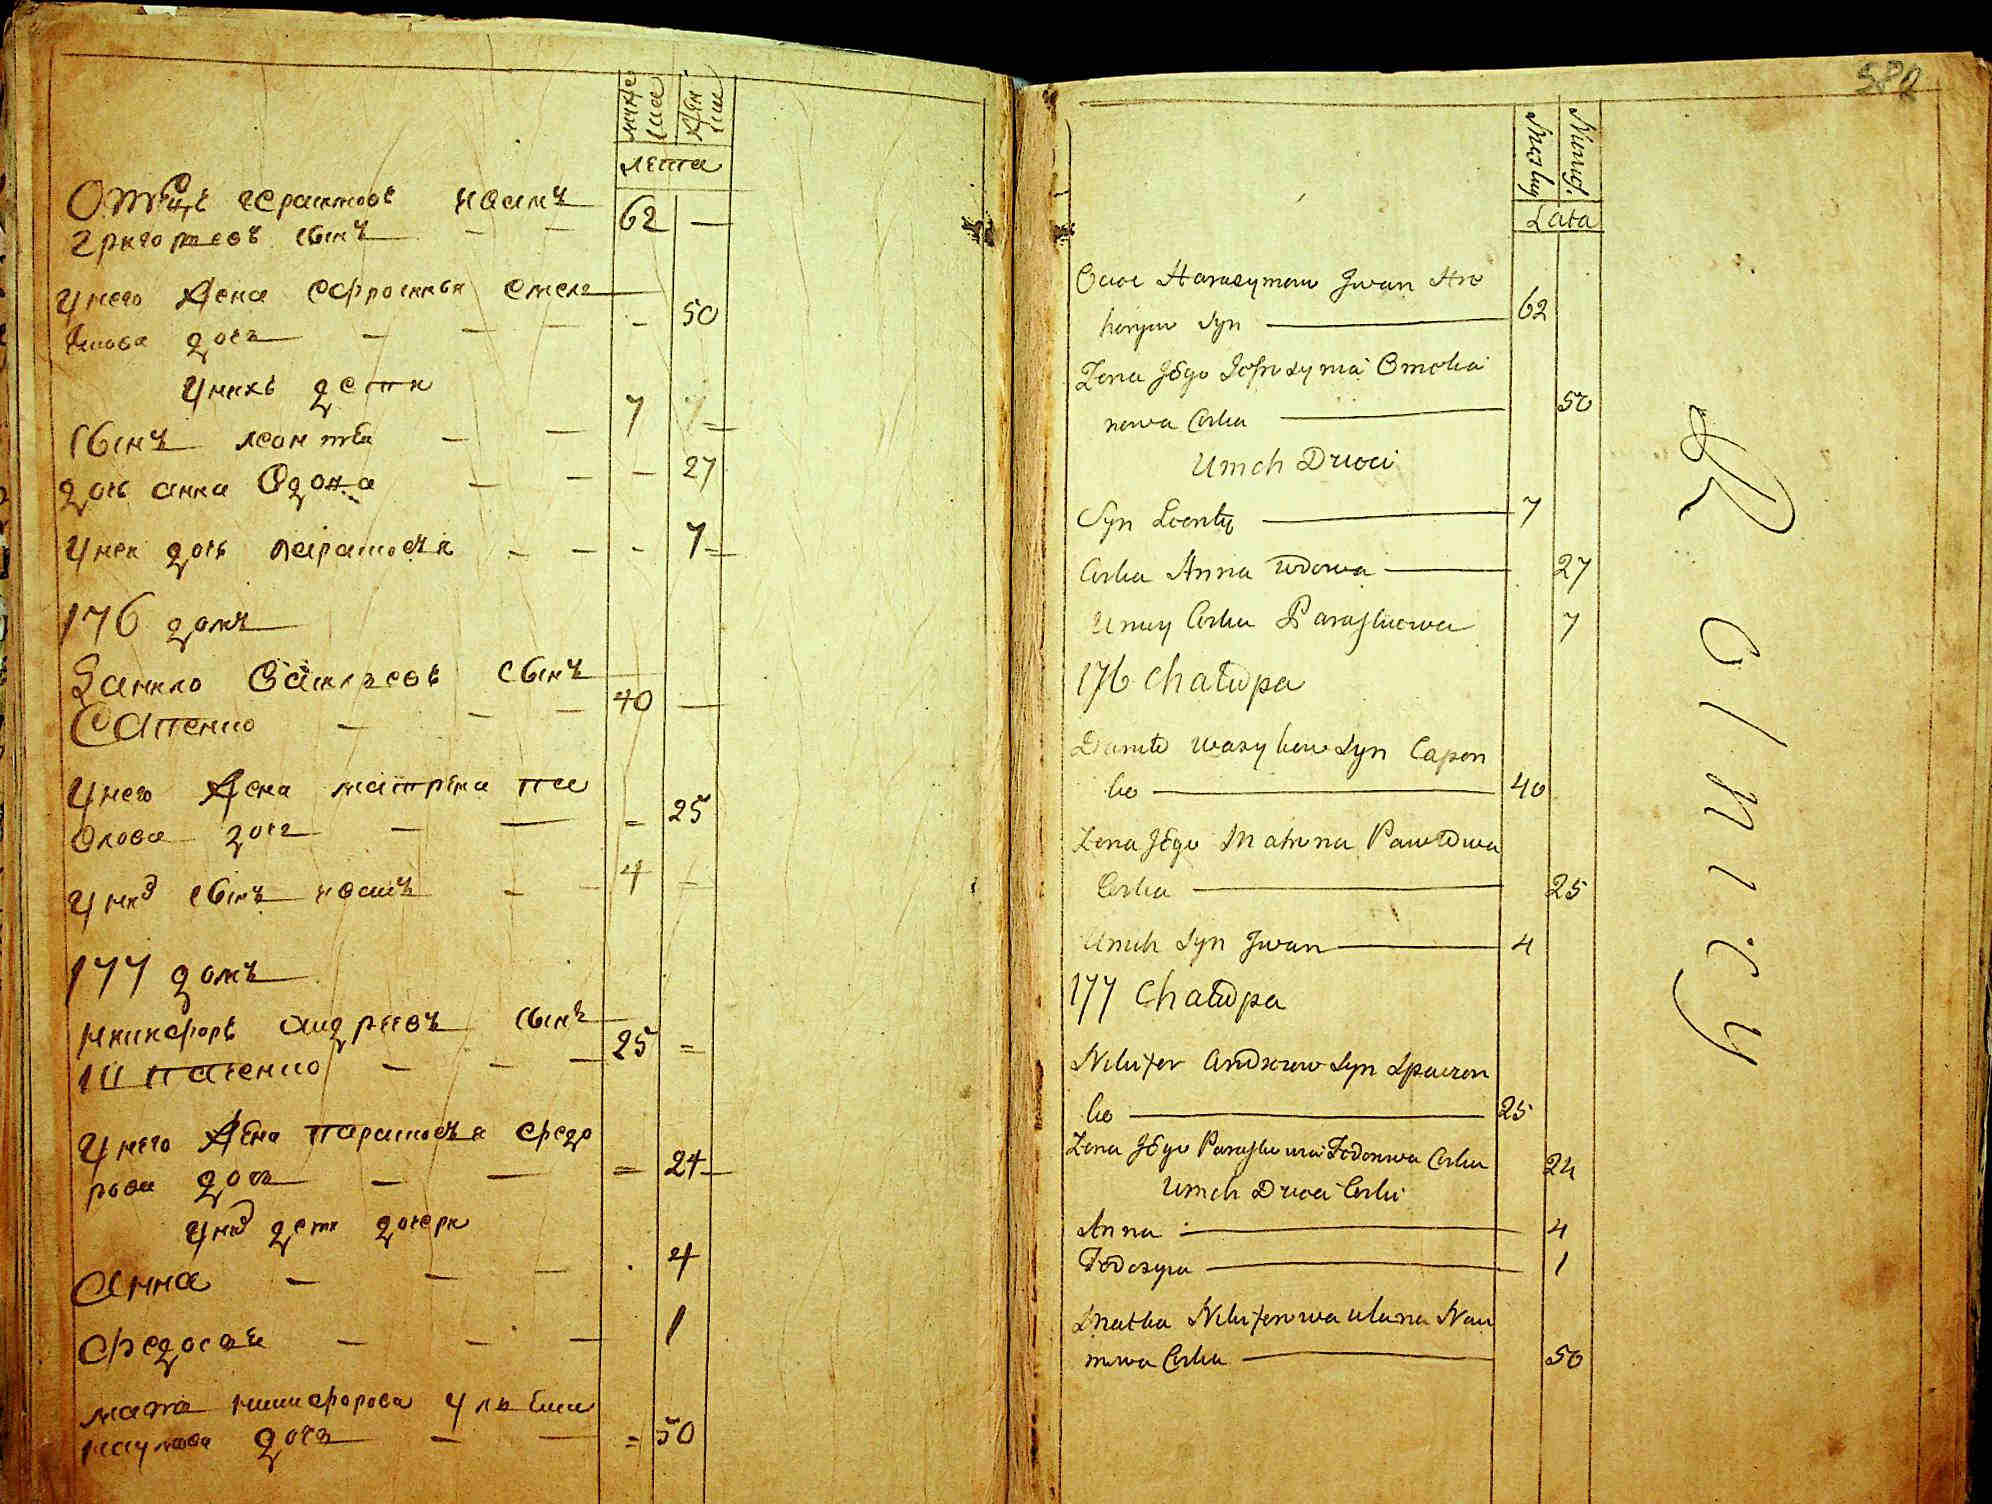 мужес
ка
жен
ска
лета
Отецъ герасимовъ иванъ 62 —
григорьевъ сынъ — —
У него жена ефросинья емель
янова дочь — — — - 50
У нихъ дети
Сынъ леонтей — — 7
дочь анна вдова — — — 27
У неи дочь парасковья - - - 7
176 домъ
Данило васильевъ сынъ 40 —
Сапенко — — —
У него жена матрена па
влова дочь — — = 25
У нихъ сынъ иванъ — - 4
177 домъ
Никифоръ андреевъ сынъ 25 =
Шпаченко — - —
У него жена парасковья федо
рова дочь — — = 24
У нихъ дети дочери
Анна — — — . 4
Федосья — - — 1
мать никифорова ульяна
наумова дочь — — = 50
582
Męskig
Niewieś.
Lata
Ociec Harasymow Jwan Hre
horyew Syn — 62
Zona Jego Jefrosynia Omelia
nowa Corka — 50
U nich Dzieci
Syn Leonty — 7
Corka Anna wdowa — 27
U niey Corka Paraskiewa 7
176 Chałupa
Daniło wasylew Syn Capen
ko — 40
Zona Jego Matrona Pawłowa
Corka — 25
U nich Syn Jwan — 4
177 Chałupa
Nikifer Andrzeiow Syn Szpaczen
ko — 25
Zona Jego Paraskiewia Fedorowa Corka 24
U nich Dzieci Corki
Anna — 4
Fedosyia — 1
Matka Nikiferowa ulana Nau
mowa Corka — 50
Rolnicy